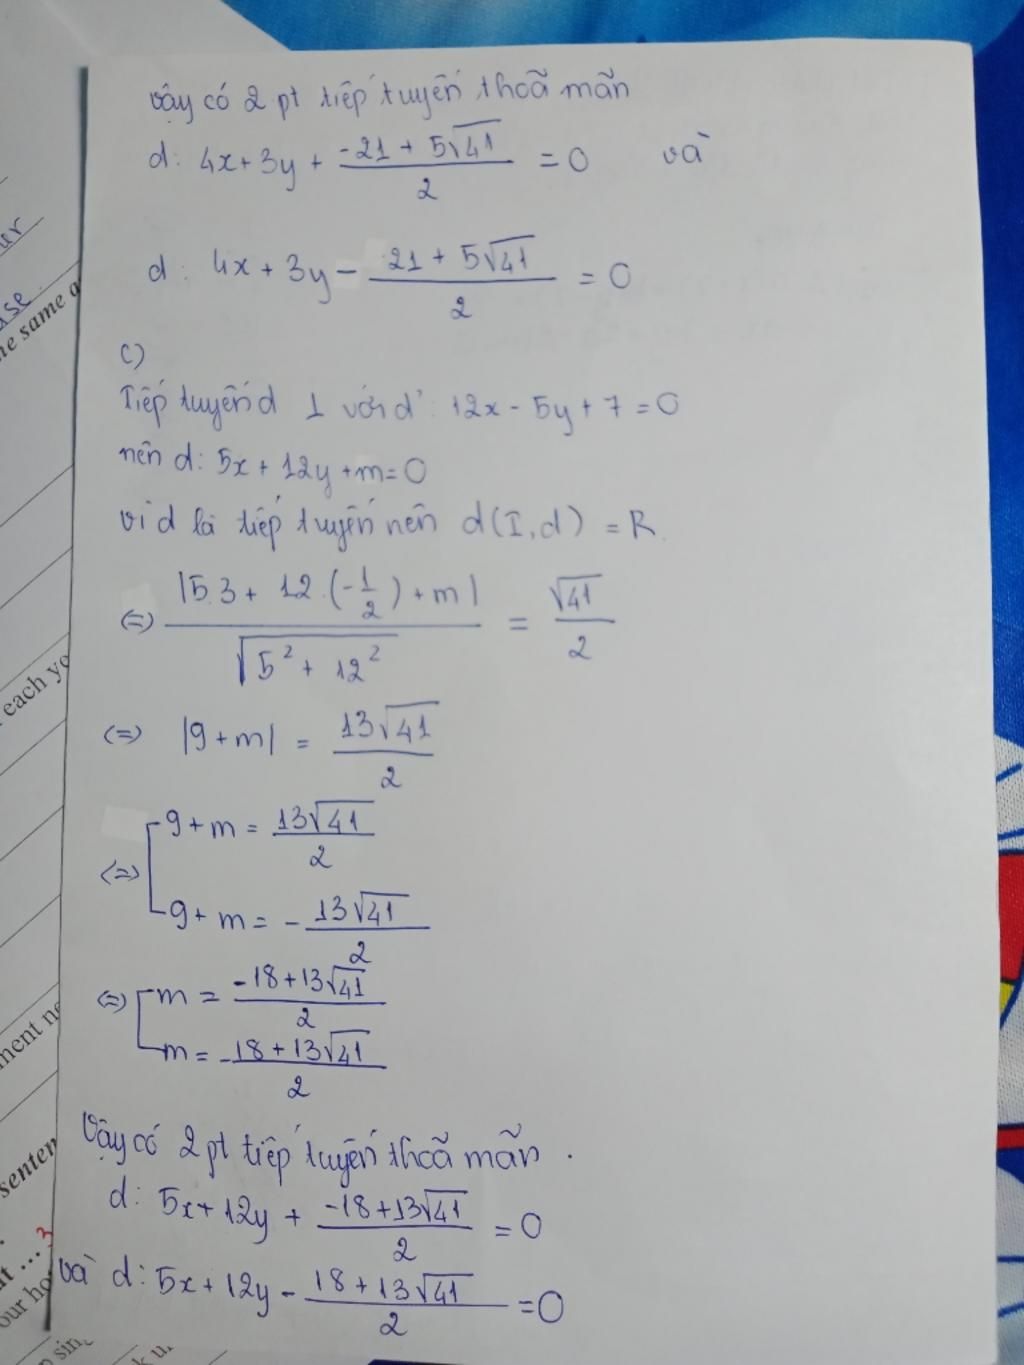 vậy có 2 pt tiếp tuyến thoã mãn
d: 4x + 3y + (-21 + 5√41)/2 = 0 và
d: 4x + 3y - (21 + 5√41)/2 = 0
c)
Tiếp tuyến d ⊥ với d': 12x - 5y + 7 = 0
nên d: 5x + 12y + m = 0
vì d là tiếp tuyến nên d(I,d) = R.
(=) |5.3 + 12.(-1/2) + m| / √(5² + 12²) = √41/2
(=) |9 + m| = 13√41/2
(=) [ 9 + m = 13√41/2
9 + m = - 13√41/2
(=) [ m = (-18 + 13√41)/2
m = - (18 + 13√41)/2
Vậy có 2 pt tiếp tuyến thoã mãn.
d: 5x + 12y + (-18 + 13√41)/2 = 0
và d: 5x + 12y - (18 + 13√41)/2 = 0
he same a
each yo
ment ne
senten